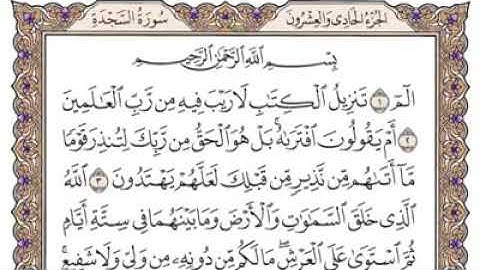 الجزء الحادي والعشرون سورة السجدة
بِسْمِ اللَّهِ الرَّحْمَٰنِ الرَّحِيمِ
الٓمٓ ١ تَنزِيلُ الْكِتَٰبِ لَا رَيْبَ فِيهِ مِن رَّبِّ الْعَٰلَمِينَ
٢ أَمْ يَقُولُونَ افْتَرَىٰهُ ۚ بَلْ هُوَ الْحَقُّ مِن رَّبِّكَ لِتُنذِرَ قَوْمًا
مَّآ أَتَىٰهُم مِّن نَّذِيرٍ مِّن قَبْلِكَ لَعَلَّهُمْ يَهْتَدُونَ ٣ اللَّهُ
الَّذِي خَلَقَ السَّمَٰوَٰتِ وَالْأَرْضَ وَمَا بَيْنَهُمَا فِي سِتَّةِ أَيَّامٍ
ثُمَّ اسْتَوَىٰ عَلَى الْعَرْشِ ۖ مَا لَكُم مِّن دُونِهِۦ مِن وَلِيٍّ وَلَا شَفِيعٍ ۚ